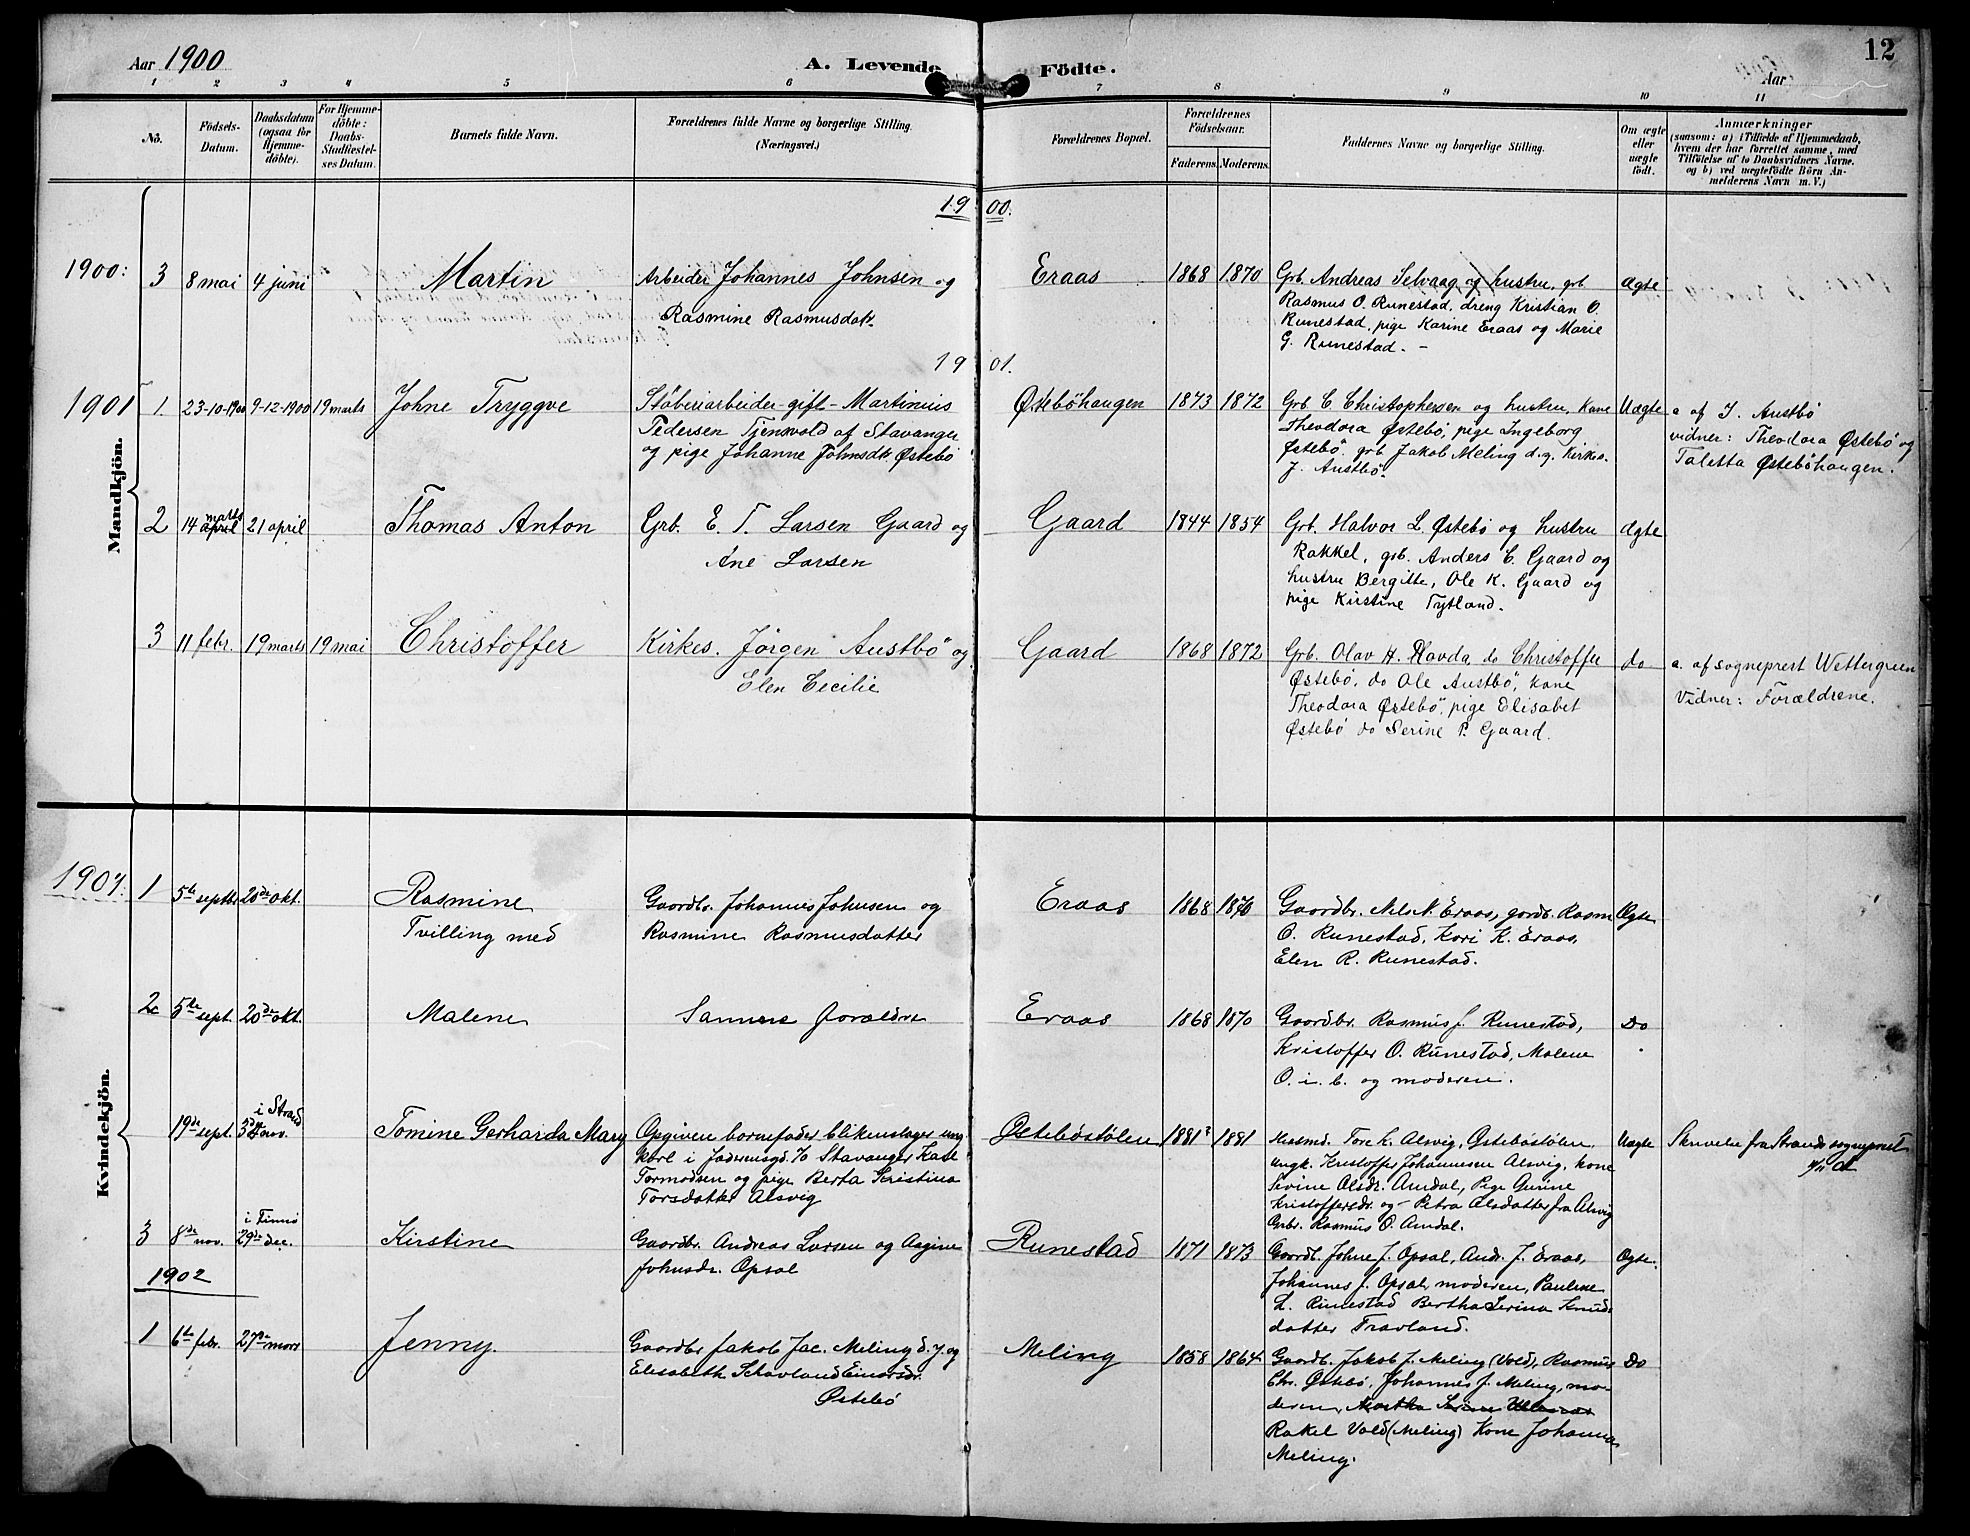 Aar 1900 A. Levende Födte. Aar 12
1 2 3 4 5 6 7 8 9 10 11
No. Födsels-Datum. Daabsdatum (ogsaa for Hjemmedöbte). For Hjemmedöbte: Daabs-Stadfæstelses Datum. Barnets fulde Navn. Forældrenes fulde Navne og borgerlige Stilling. (Næringsvei.) Forældrenes Bopæl. Forældrenes Födselsaar. Faderens. Moderens. Faddernes Navne og borgerlige Stilling. Om ægte eller uægte födt. Anmærkninger (saasom: a) i Tilfælde af Hjemmedaab, hvem der har forrettet samme, med Tilföielse af to Daabsvidners Navne. og b) ved uægtefödte Börn Anmelderens Navn m. V.)
1900.
Mandkjön.
1900: 3 8 mai 4 juni Martin Arbeider Johannes Johnsen og Eraas 1868 1870 Grb. Andreas Selvaag og hustru, grb. Ægte
Rasmine Rasmusdatr. Rasmus O. Runestad, dreng Kristian O.
Runestad, pige Karine Eraas og Marie
G. Runestad. -
1901.
1901 1 23-10-1900 9-12-1900 19 marts Johne Tryggve Støberiarbeider gift Martinius Østeböhaugen 1873 1872 Grb. C. Christophersen og hustru, kone Uægte a af J. Austbö
Pedersen Tjensvold af Stavanger Theodora Østebö, pige Ingeborg vidner: Theodora Østebö og
og pige Johanne Johnsdtr Østebö Østebö, grb Jakob Meling d.y. Kirkes. Taletta Østeböhaugen.
J. Austbö
2 14 april marts 21 april Thomas Anton Grb. E. T. Larsen Gaard og Gaard 1844 1854 Grb. Halvor L. Østebö og hustru Ægte
Ane Larsen Rakkel, grb. Anders C. Gaard og
hustru Bergitte, Ole K. Gaard og
pige Kirstine Tytland.
3 11 febr. 19 marts 19 mai Christoffer Kirkes. Jörgen Austbö og Gaard 1868 1872 Grb. Olav H. Havda, do Christoffer do a. af sogneprest Wettergreen
Elen Cecilie Østebö, do Ole Austbö, kone Vidner: Forældrene.
Theodora Østebö, pige Elisabet
Østebö do Serine P. Gaard.
Kvindekjön.
1901: 1 5te septbr 20de okt. Rasmine Gaardbr. Johannes Johnsen og Eraas 1868 1870 Gaardbr. Nels N. Eraas, gardb. Rasm Ægte
Tvilling med Rasmine Rasmusdatter O. Runestad, Kari K. Eraas,
Elen R. Runestad.
2 5te sept. 20de okt. Malene Samme foraldre Eraas 1868 1870 Gaardbr. Rasmus J. Runestad, Do
Kristoffer O. Runestad, Malene
O. i. b. og moderen.
19de sept. i Strand 3die nov. Tomine Gerharda Mary Opgiven barnefader blikenslager ung Østeböstölen 1881? 1881 Husmd. Tore L. Alsvig, Østebøstölen, Uægte Skrivelse fra Strands sogneprest
karl i Jaderensgd. 70 Stavanger Karl ungk. Kristoffer Johannesen Alsvig, kone 4/11 01
Tormodsen og pige Berta Kristina Sevine Olsdr. Amdal, Pige Gurine
Torsdatter Alsvig Kristoffersdr. og Petra Olsdatter fra Alsvig
Grbr. Rasmus O. Amdal.
3 8de nov. i Finnö 29de dec. Kirstine Gaardbr. Andreas Larsen og Aagine Runestad 1871 1873 Gaardb. Johne J. Opsal, Andr. J. Eraas, Ægte.
Johnsdr. Opsal Johannes J. Opsal, moderen, Pauline
L. Runestad Bertha Serina Knuds
datter Travland.
1902
1 6te febr. 27de mars Jenny Gaardbr Jakob Jac. Meling d. y. og Meling 1858 1864 Gaardb. Jakob J. Meling (Vold), Rasmus Do
Elisabeth Schavland Einarsdr. Chr. Østebö, Johannes J. Meling, mo-
Østebö deren, Martha Serine
Rakel Vold (Meling) Kone Johanna
Meling.